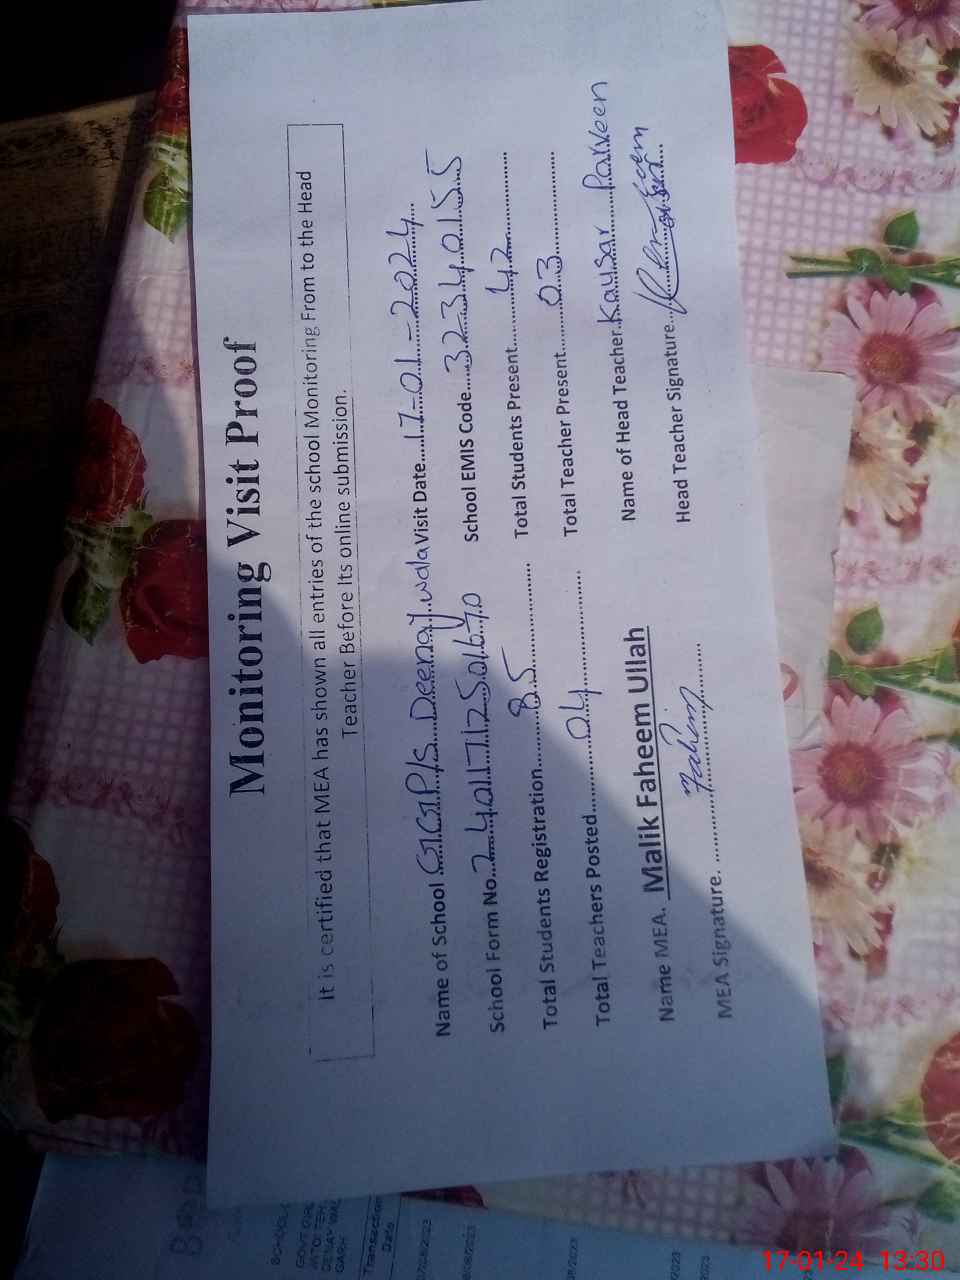 Monitoring Visit Proof
It is certified that MEA has shown all entries of the school Monitoring From to the Head
Teacher Before Its online submission.
Name of School GGP/S Deenay wala Visit Date 17-01-2024
School Form No. 2401171250167 0 School EMIS Code 32340155
Total Students Registration 85 Total Students Present 42
Total Teachers Posted 04 Total Teacher Present 03
Name MEA. Malik Faheem Ullah Name of Head Teacher Kausar Parveen
MEA Signature. Faheem Head Teacher Signature
SCHOOL
GOVT GIRL
JATOI TEH
DENAY WAL
GARH
Transaction
Date
17-01-24 13:30